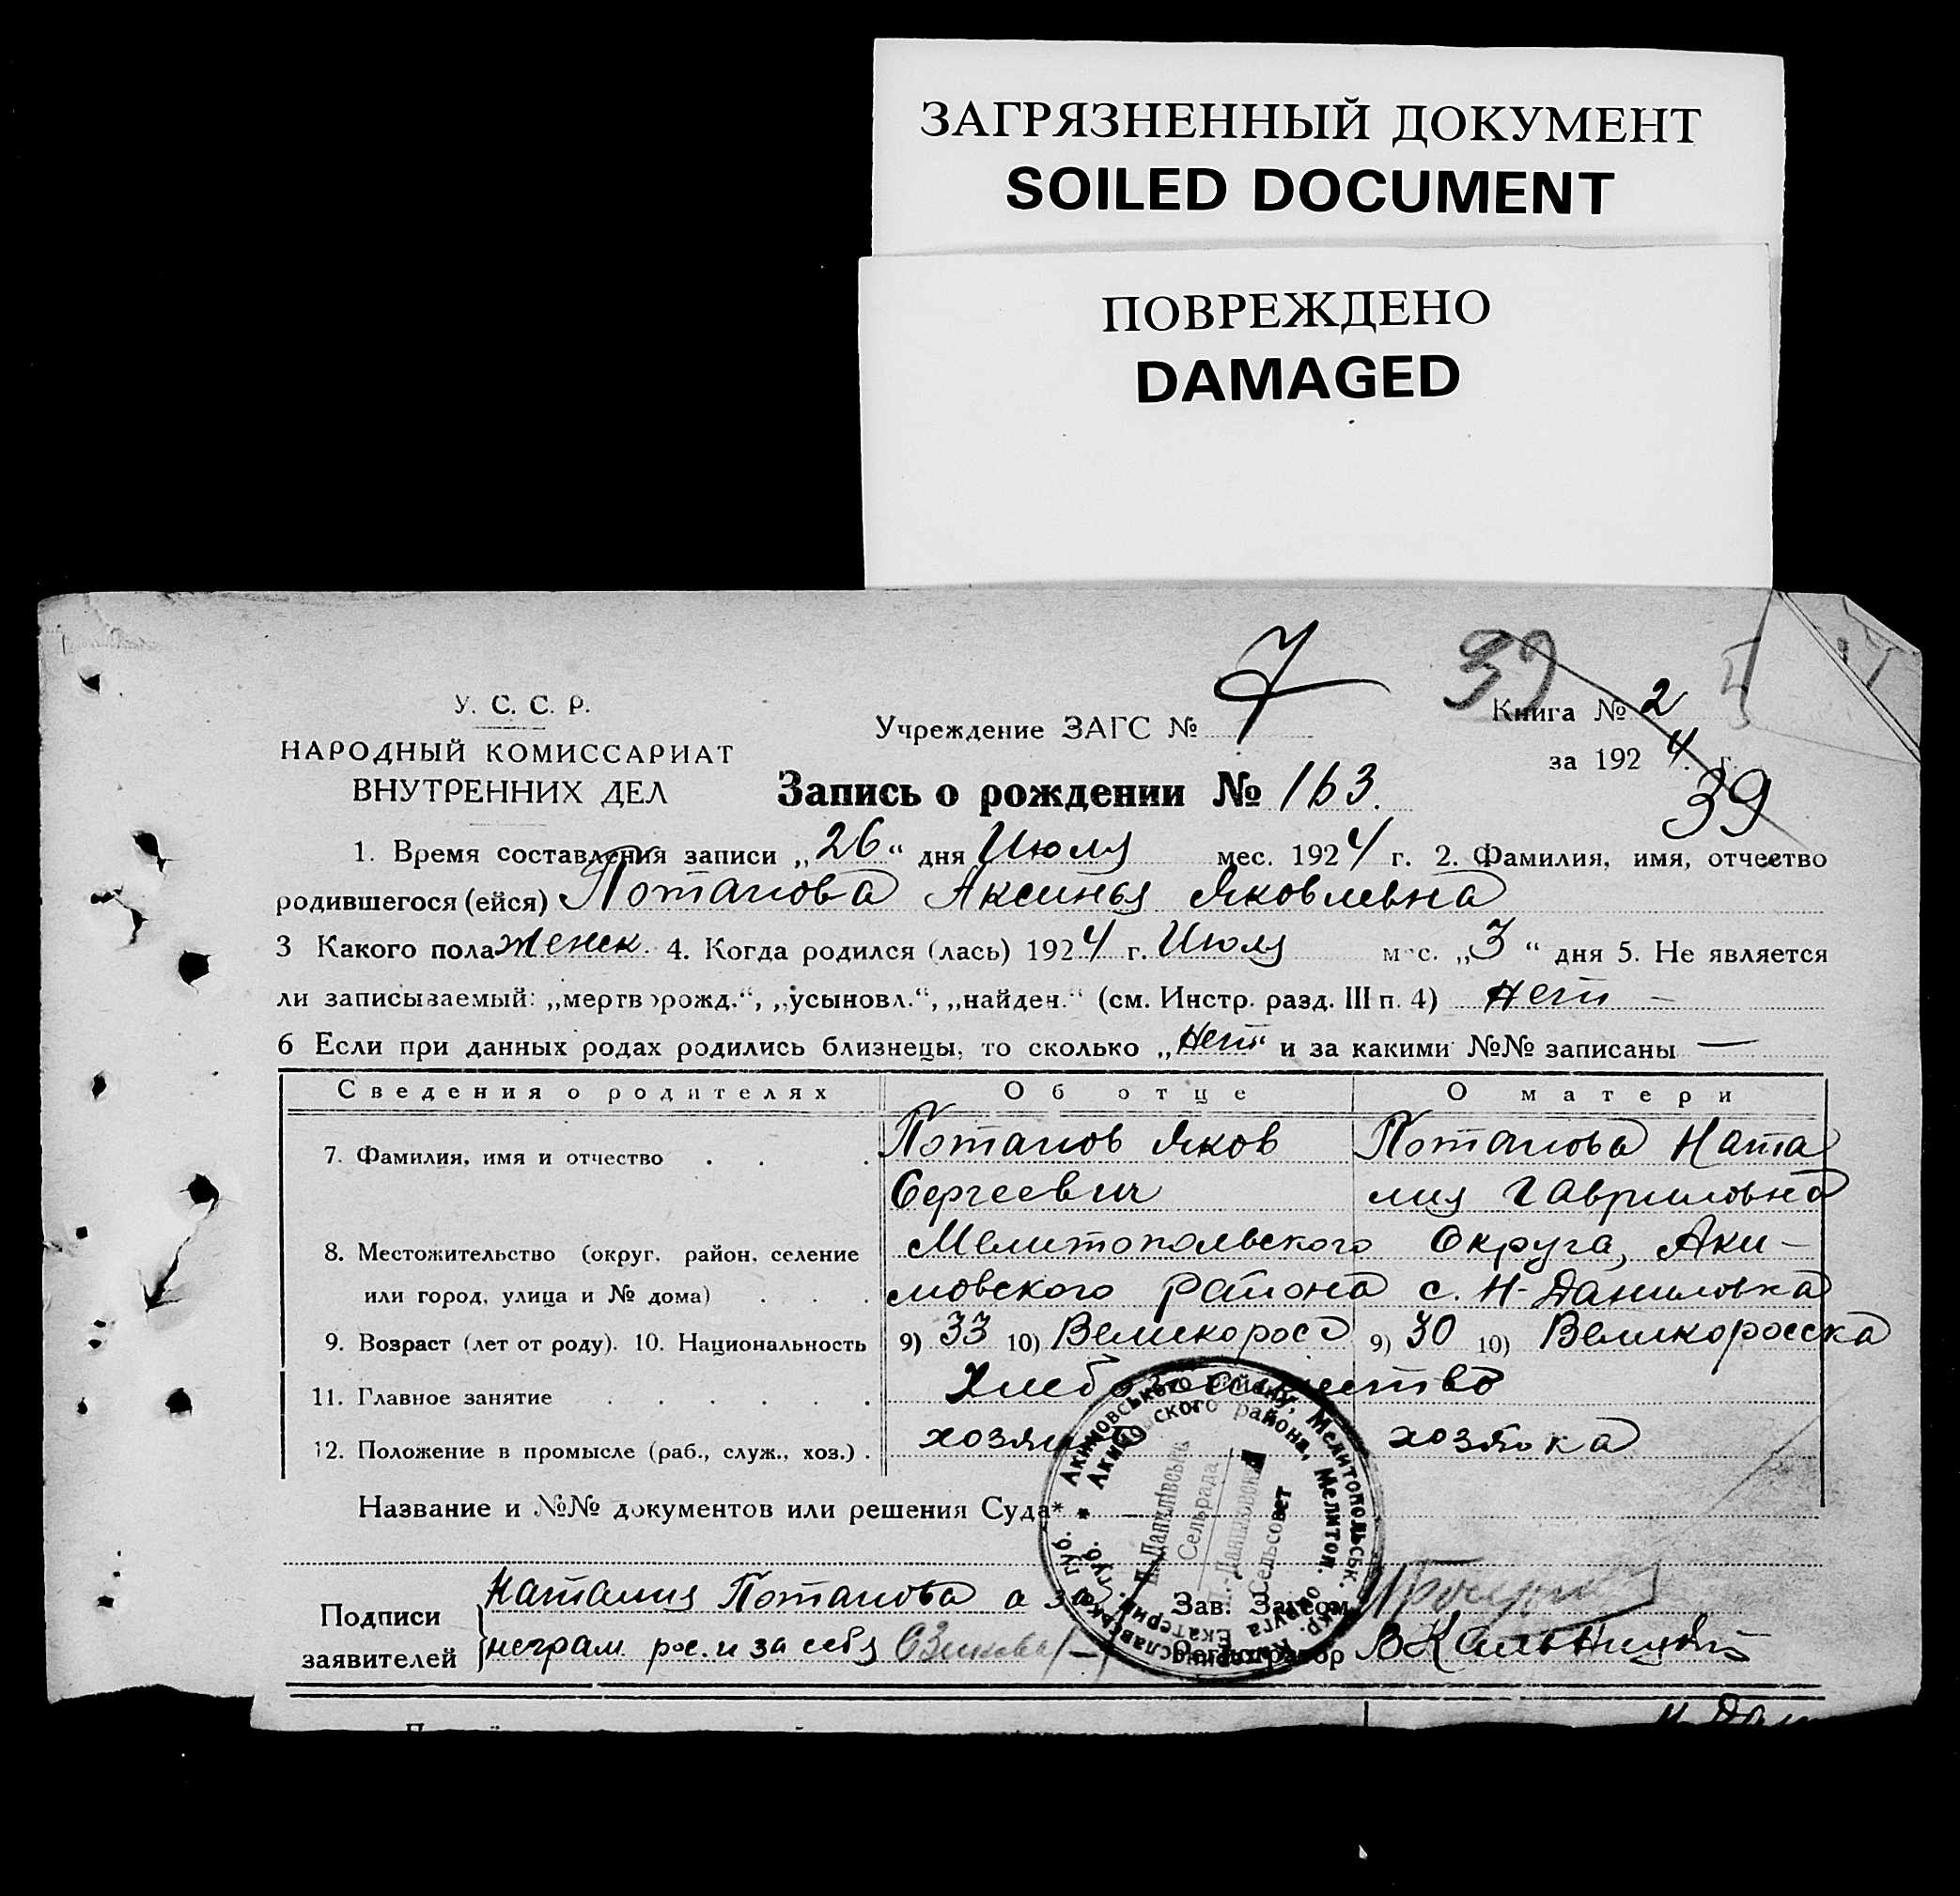 ЗАГРЯЗНЕННЫЙ ДОКУМЕНТ
SOILED DOCUMENT
ПОВРЕЖДЕНО
DAMAGED
39
У. С. С. Р.
НАРОДНЫЙ КОМИССАРИАТ
ВНУТРЕННИХ ДЕЛ
Учреждение ЗАГС № 7
Книга № 2
за 1924 г.
39
Запись о рождении № 163.
1. Время составления записи „26“ дня Июля мес. 1924 г. 2. Фамилия, имя, отчество
родившегося (ейся) Потапова Аксинья Яковлевна
3 Какого пола женск. 4. Когда родился (лась) 1924 г. Июля мес. „3“ дня 5. Не является
ли записываемый: „мертворожд.“, „усыновл.“, „найден.“ (см. Инстр. разд. III п. 4) нет —
6 Если при данных родах родились близнецы, то сколько „нет“ и за какими №№ записаны —
Сведения о родителях Об отце О матери
7. Фамилия, имя и отчество . . . Потапов Яков Потапова Ната
Сергеевич лия Гавриловна
8. Местожительство (округ, район, селение Мелитопольского Округа, Аки-
или город, улица и № дома) . . . мовского района с. Н-Даниловка
9. Возраст (лет от роду). 10. Национальность 9) 33 10) Великоросс 9) 30 10) Великоросска
11. Главное занятие . . . . . . Хлебопашество
12. Положение в промысле (раб., служ., хоз.) . хозяин хозяйка
Название и №№ документов или решения Суда* —
Подписи
заявителей
Наталия Потапова а за
неграм. рос. и за себя
Зав. Загсом
Регистратор В Кальницкий
Акимовського району, Мелитопольськ. окр. Катеринославської губ.
Акимовского района, Мелитоп. округа Екатерин. губ.
Н.-Данилівськ.
Сельрада
Н.-Даниловский
Сельсовет